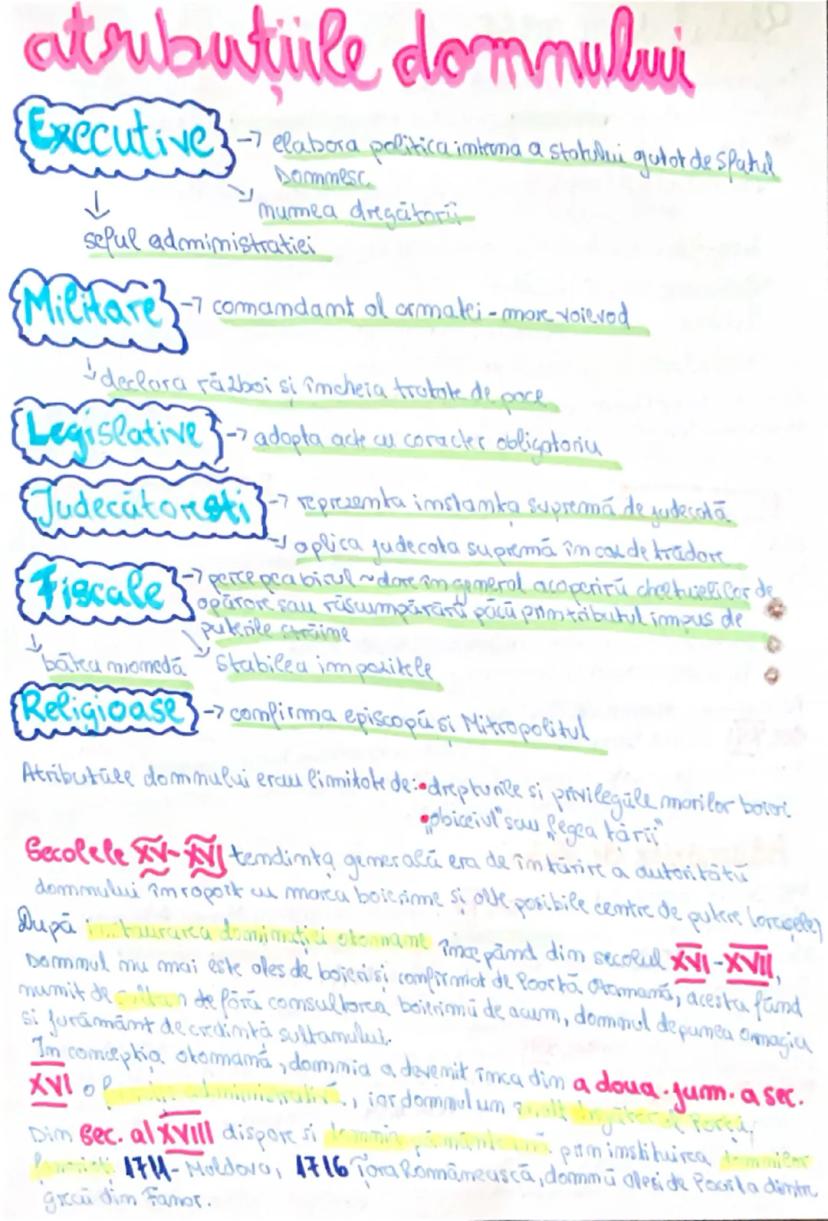 atribuțiile domnului
Executive → elabora politica interna a statului ajutat de Sfatul
Domnesc
numea dregătorii
seful administratiei
Militare → comandant al armatei - mare voievod
declara război si încheia tratate de pace
Legislative → adopta acte cu caracter obligatoriu
Judecătoresti → reprezenta instanța supremă de judecată
aplica judecata supremă în caz de trădare
Fiscale → percepea birul ~ dare în general acoperirii cheltuielilor de
apărare sau răscumpărării păcii prin tributul impus de
puterile străine
bătea monedă stabilea impozitele
Religioase → confirma episcopii si Mitropolitul
Atributiile domnului erau limitate de: • drepturile si privilegiile marilor boieri
• „obiceiul" sau „legea tării"
Secolele XV-XVI tendința generală era de întărire a autorității
domnului în raport cu marea boierime si alte posibile centre de putere (orașele)
După instaurarea dominației otomane începând din secolul XVI-XVII,
Domnul nu mai este ales de boieri si confirmat de Poarta Otomană, acesta fiind
numit de sultan de fără consultarea boierimii de acum, domnul depunea omagiu
si jurământ de credintă sultanului.
În concepția otomană, domnia a devenit inca din a doua jum. a sec.
XVI o funcție administrativă, iar domnul un înalt dregător al Porții
Din sec. al XVIII dispare si domnia pământeană prin instituirea domnilor
fanarioți 1711 - Moldova, 1716 Țara Românească, domnii alesi de Poarta dintre
grecii din Fanar.